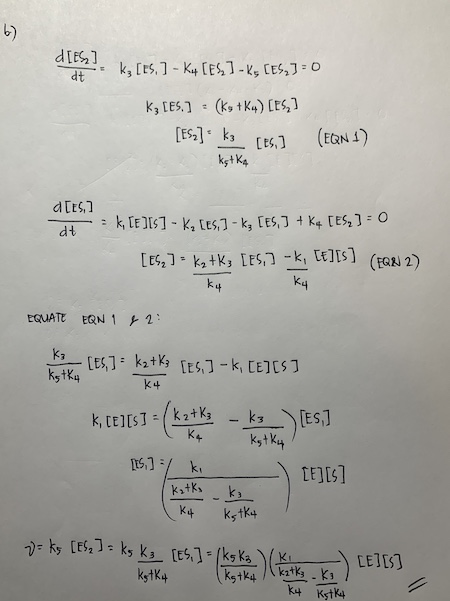 b)
d[ES₂]/dt = k₃[ES₁] - k₄[ES₂] - k₅[ES₂] = 0
k₃[ES₁] = (k₅+k₄)[ES₂]
[ES₂] = k₃/(k₅+k₄) [ES₁] (EQN 1)
d[ES₁]/dt = k₁[E][S] - k₂[ES₁] - k₃[ES₁] + k₄[ES₂] = 0
[ES₂] = (k₂+k₃)/k₄ [ES₁] - k₁/k₄ [E][S] (EQN 2)
EQUATE EQN 1 & 2:
k₃/(k₅+k₄) [ES₁] = (k₂+k₃)/k₄ [ES₁] - k₁[E][S]
k₁[E][S] = ((k₂+k₃)/k₄ - k₃/(k₅+k₄)) [ES₁]
[ES₁] = (k₁/((k₂+k₃)/k₄ - k₃/(k₅+k₄))) [E][S]
v = k₅[ES₂] = k₅ k₃/(k₅+k₄) [ES₁] = (k₅k₃/(k₅+k₄)) (k₁/((k₂+k₃)/k₄ - k₃/(k₅+k₄))) [E][S]